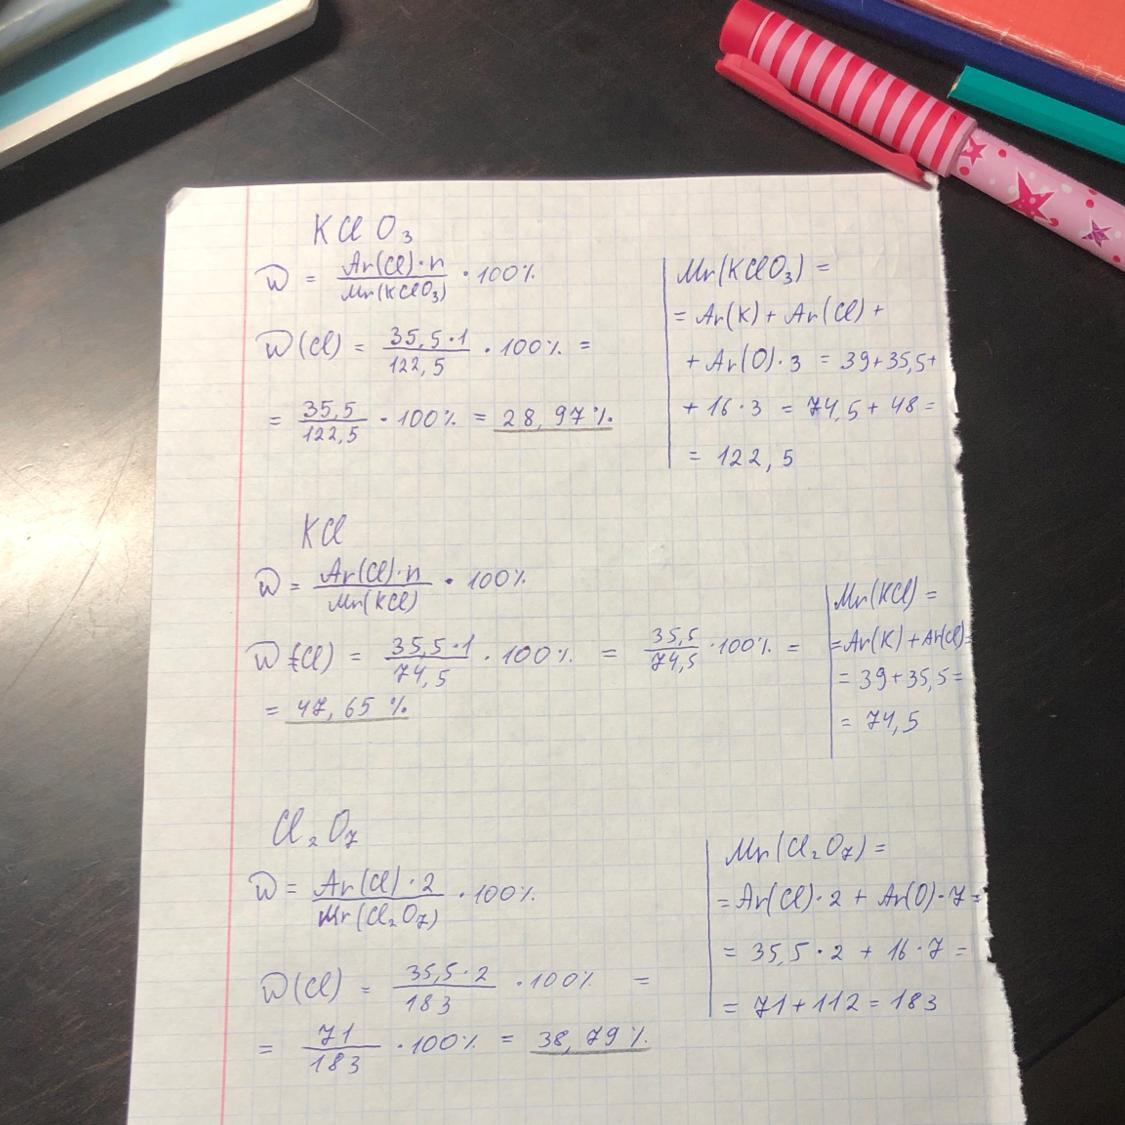 KClO₃
W = Ar(Cl)·n / Mr(KClO₃) · 100%
W(Cl) = 35,5·1 / 122,5 · 100% =
= 35,5 / 122,5 · 100% = 28,97%
Mr(KClO₃) =
= Ar(K) + Ar(Cl) +
+ Ar(O)·3 = 39+35,5+
+ 16·3 = 74,5 + 48 =
= 122,5
KCl
W = Ar(Cl)·n / Mr(KCl) · 100%
W(Cl) = 35,5·1 / 74,5 · 100% = 35,5 / 74,5 · 100% =
= 47,65 %
Mr(KCl) =
= Ar(K) + Ar(Cl) =
= 39+35,5 =
= 74,5
Cl₂O₇
W = Ar(Cl)·2 / Mr(Cl₂O₇) · 100%
W(Cl) = 35,5·2 / 183 · 100% =
= 71 / 183 · 100% = 38,79%
Mr(Cl₂O₇) =
= Ar(Cl)·2 + Ar(O)·7 =
= 35,5·2 + 16·7 =
= 71+112 = 183